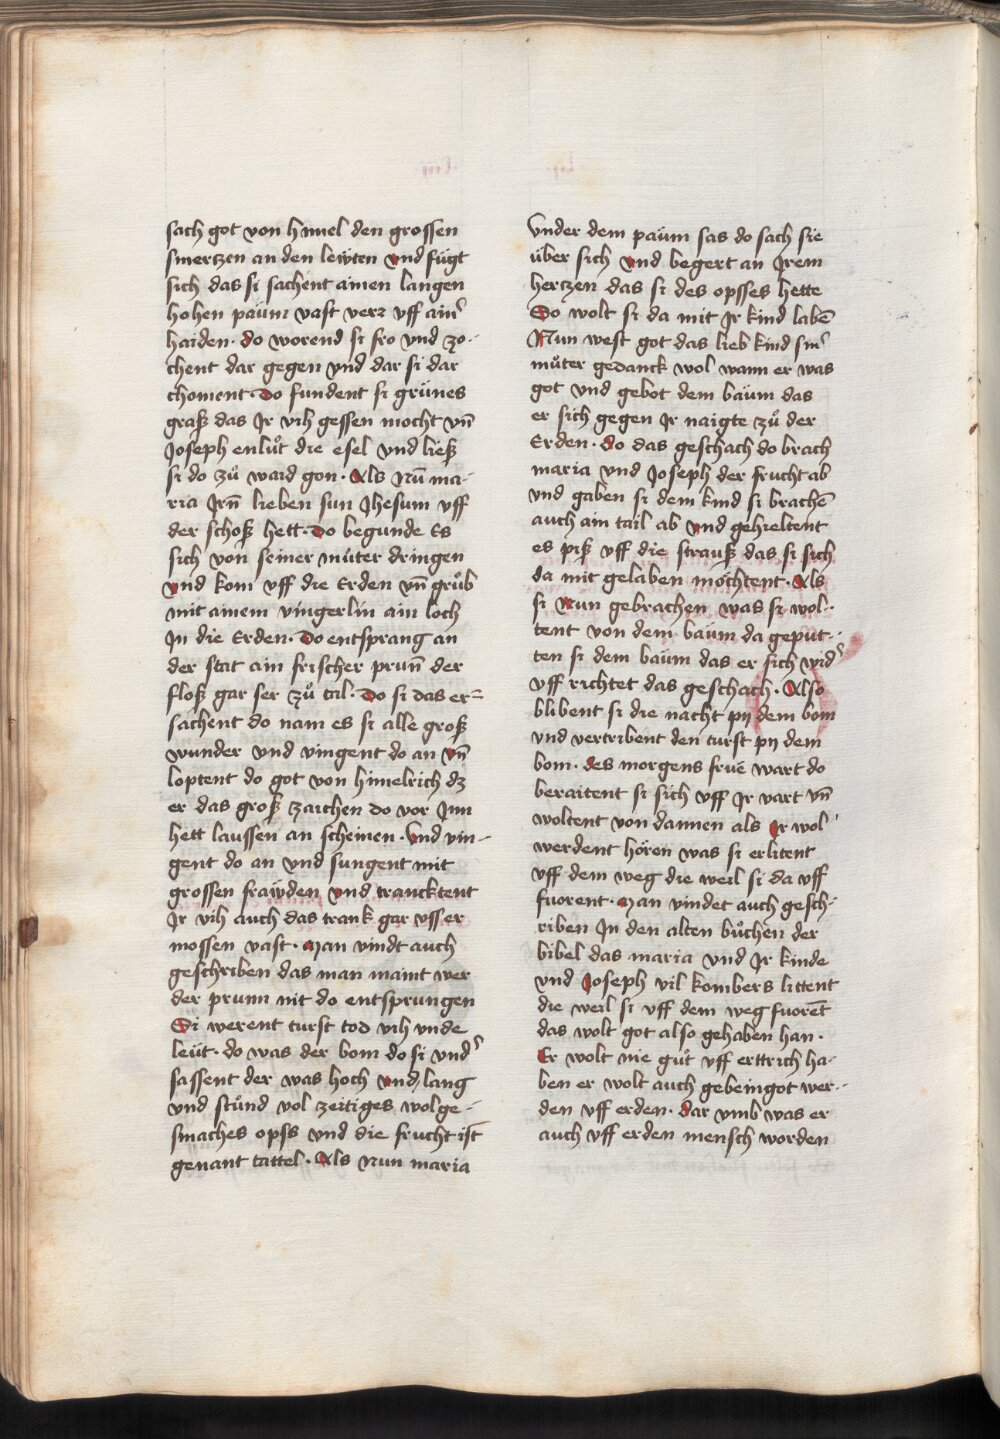 sach got von himel den grossen
smertzen an den lewten vnd fügt
sich das si sachent ainen langen
hohen paüm vast verr vff ainr̄
haiden · do worend si fro vnd zo-
chent dar gegen vnd dar si dar
choment · Do fundent si grünes
graß das Jr vih gessen mocht vn̄
Joseph enlůt die esel vnd ließ
si do zů waid gon · Als Nū ma-
ria Jrn̄ lieben sun Jhesum vff
der schoß hett · Do begunde Es
sich von seiner můter dringen
vnd kom vff die Erden vn̄ grůb
mit ainem vingerlin ain loch
Jn die Erden · Do entsprang an
der stat ain frischer prun̄ der
floß gar ser zů tal · Do si das er-
sachent do nam es si alle groß
wunder vnd vingent do an vn̄
loptent do got von himelrich dz
er das groß zaichen do vor Jnn
hett laussen an scheinen · Vnd vin-
gent do an vnd sungent mit
grossen frawden vnd trancktent
Jr vih auch das trank gar vsser
mossen vast · Man vindt auch
geschriben das man maint wer
der prunn nit do entsprungen
Si werent turst tod vih vnde
leüt · do was der bom do si vndr̄
sassent der was hoch vnd lang
vnd stůnd vol zeitiges wolge-
smaches opss vnd die frucht ist
genant tattel · Als Nun maria
Vnder dem paüm sas do sach sie
über sich vnd begert an Jrem
hertzen das si des opsses hette
Do wolt si da mit Jr kind labē
Nun west got das lieb kind sinr̄
můter gedanck wol wann er was
got vnd gebot dem baüm das
er sich gegen Jr naigte zů der
Erden · do das geschach do brach
maria vnd Joseph der frucht ab
vnd gaben si dem kind si brachē
auch ain tail ab vnd gehieltent
es piß vff die strauß das si sich
da mit gelaben möchtent · Als
si Nun gebrachen was si wol-
tent von dem baüm da geput-
ten si dem baüm das er sich widr̄
vff richtet das geschach · Also
blibent si die nacht pij dem bom
vnd vertribent den turst pij dem
bom · des morgens frue wart do
beraitent si sich vff Jr vart vn̄
woltent von dannen als Jr wol
werdent hören was si erlitent
vff dem weg die weil si da vff
fuorent · Man vindet auch gesch-
riben Jn den alten bůchen der
bibel das maria vnd Jr kinde
vnd Joseph vil kombers littent
die weil si vff dem weg fuorēt
das wolt got also gehaben han ·
Er wolt nie gůt vff erttrich ha-
ben er wolt auch gebeingot wer-
den vff erden · dar vmb was er
auch vff erden mensch worden